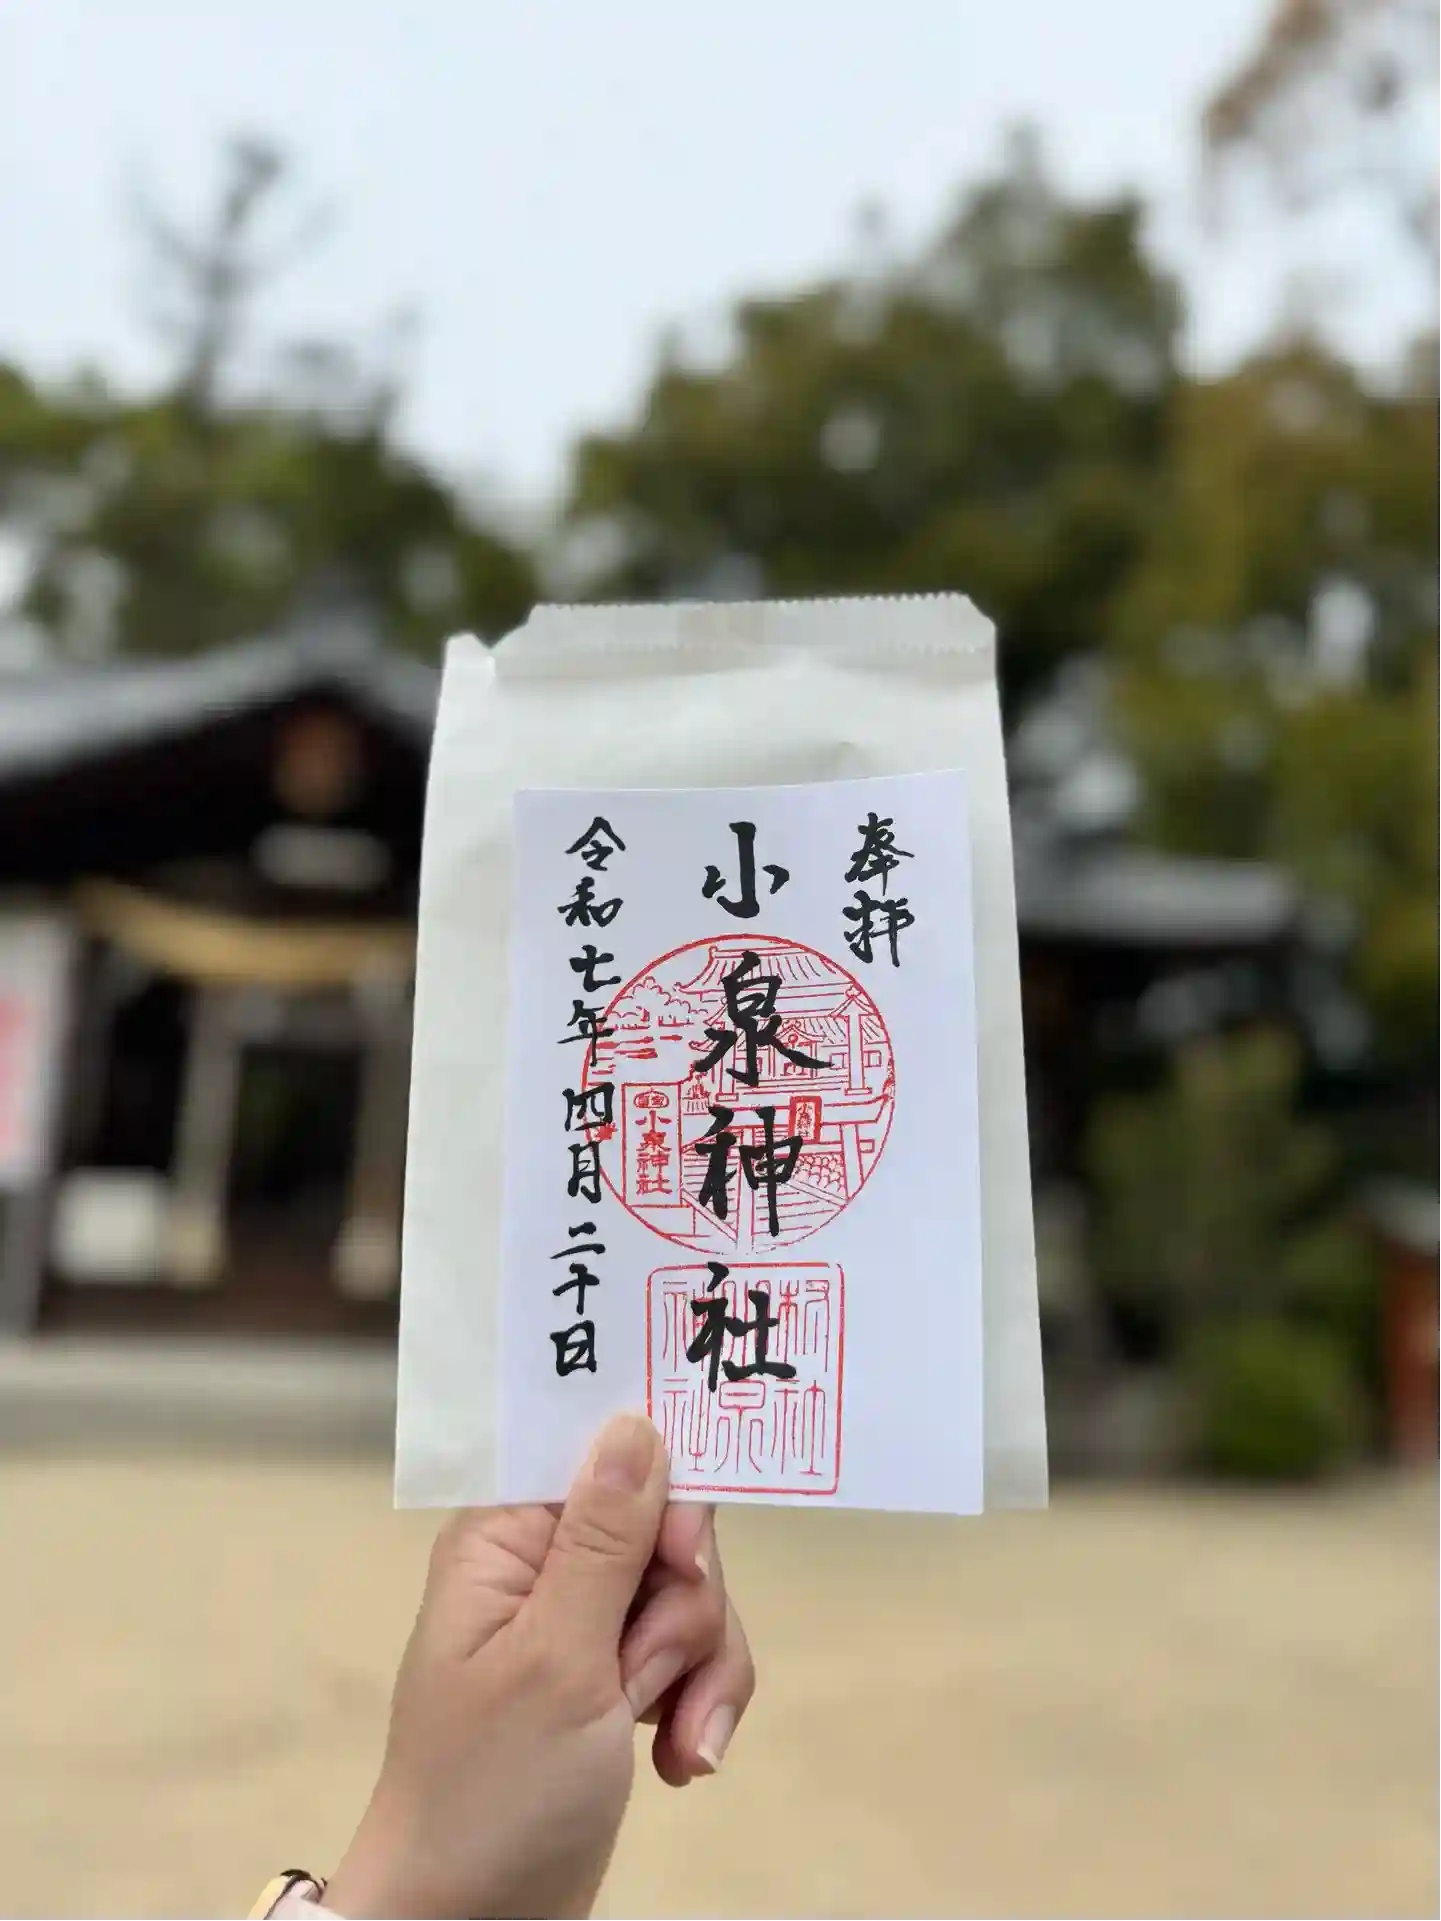 奉拝
小泉神社
令和七年四月二十日
小泉神社
村社
小泉
神社